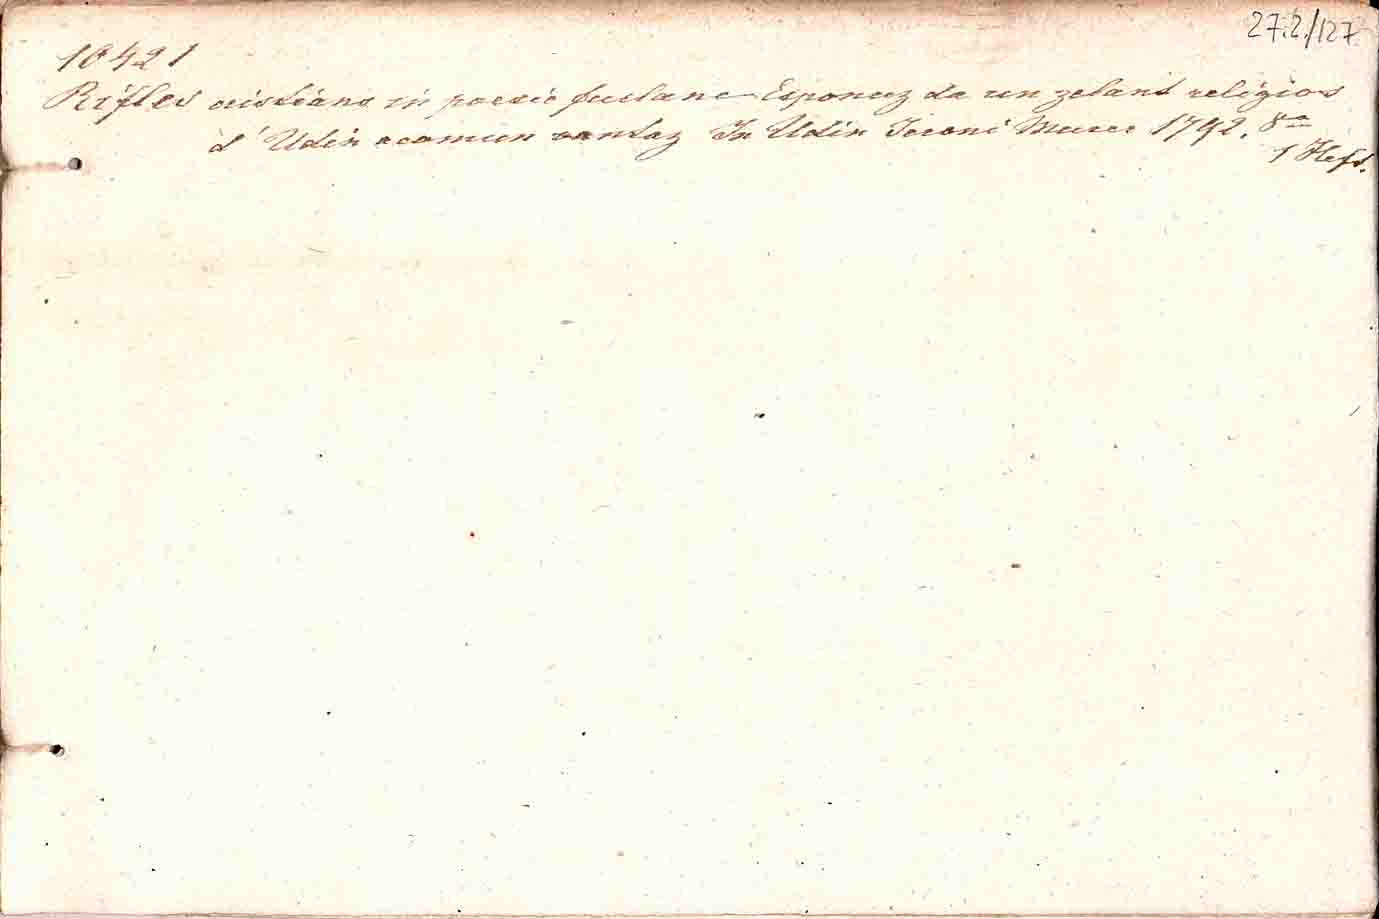 27.2./127
10421
Rifles cristiano in poesie furlane Esponuz da un zelant religios
d' Udin a comun vantaz In Udin Murer 1742. 8°
1 Heft.